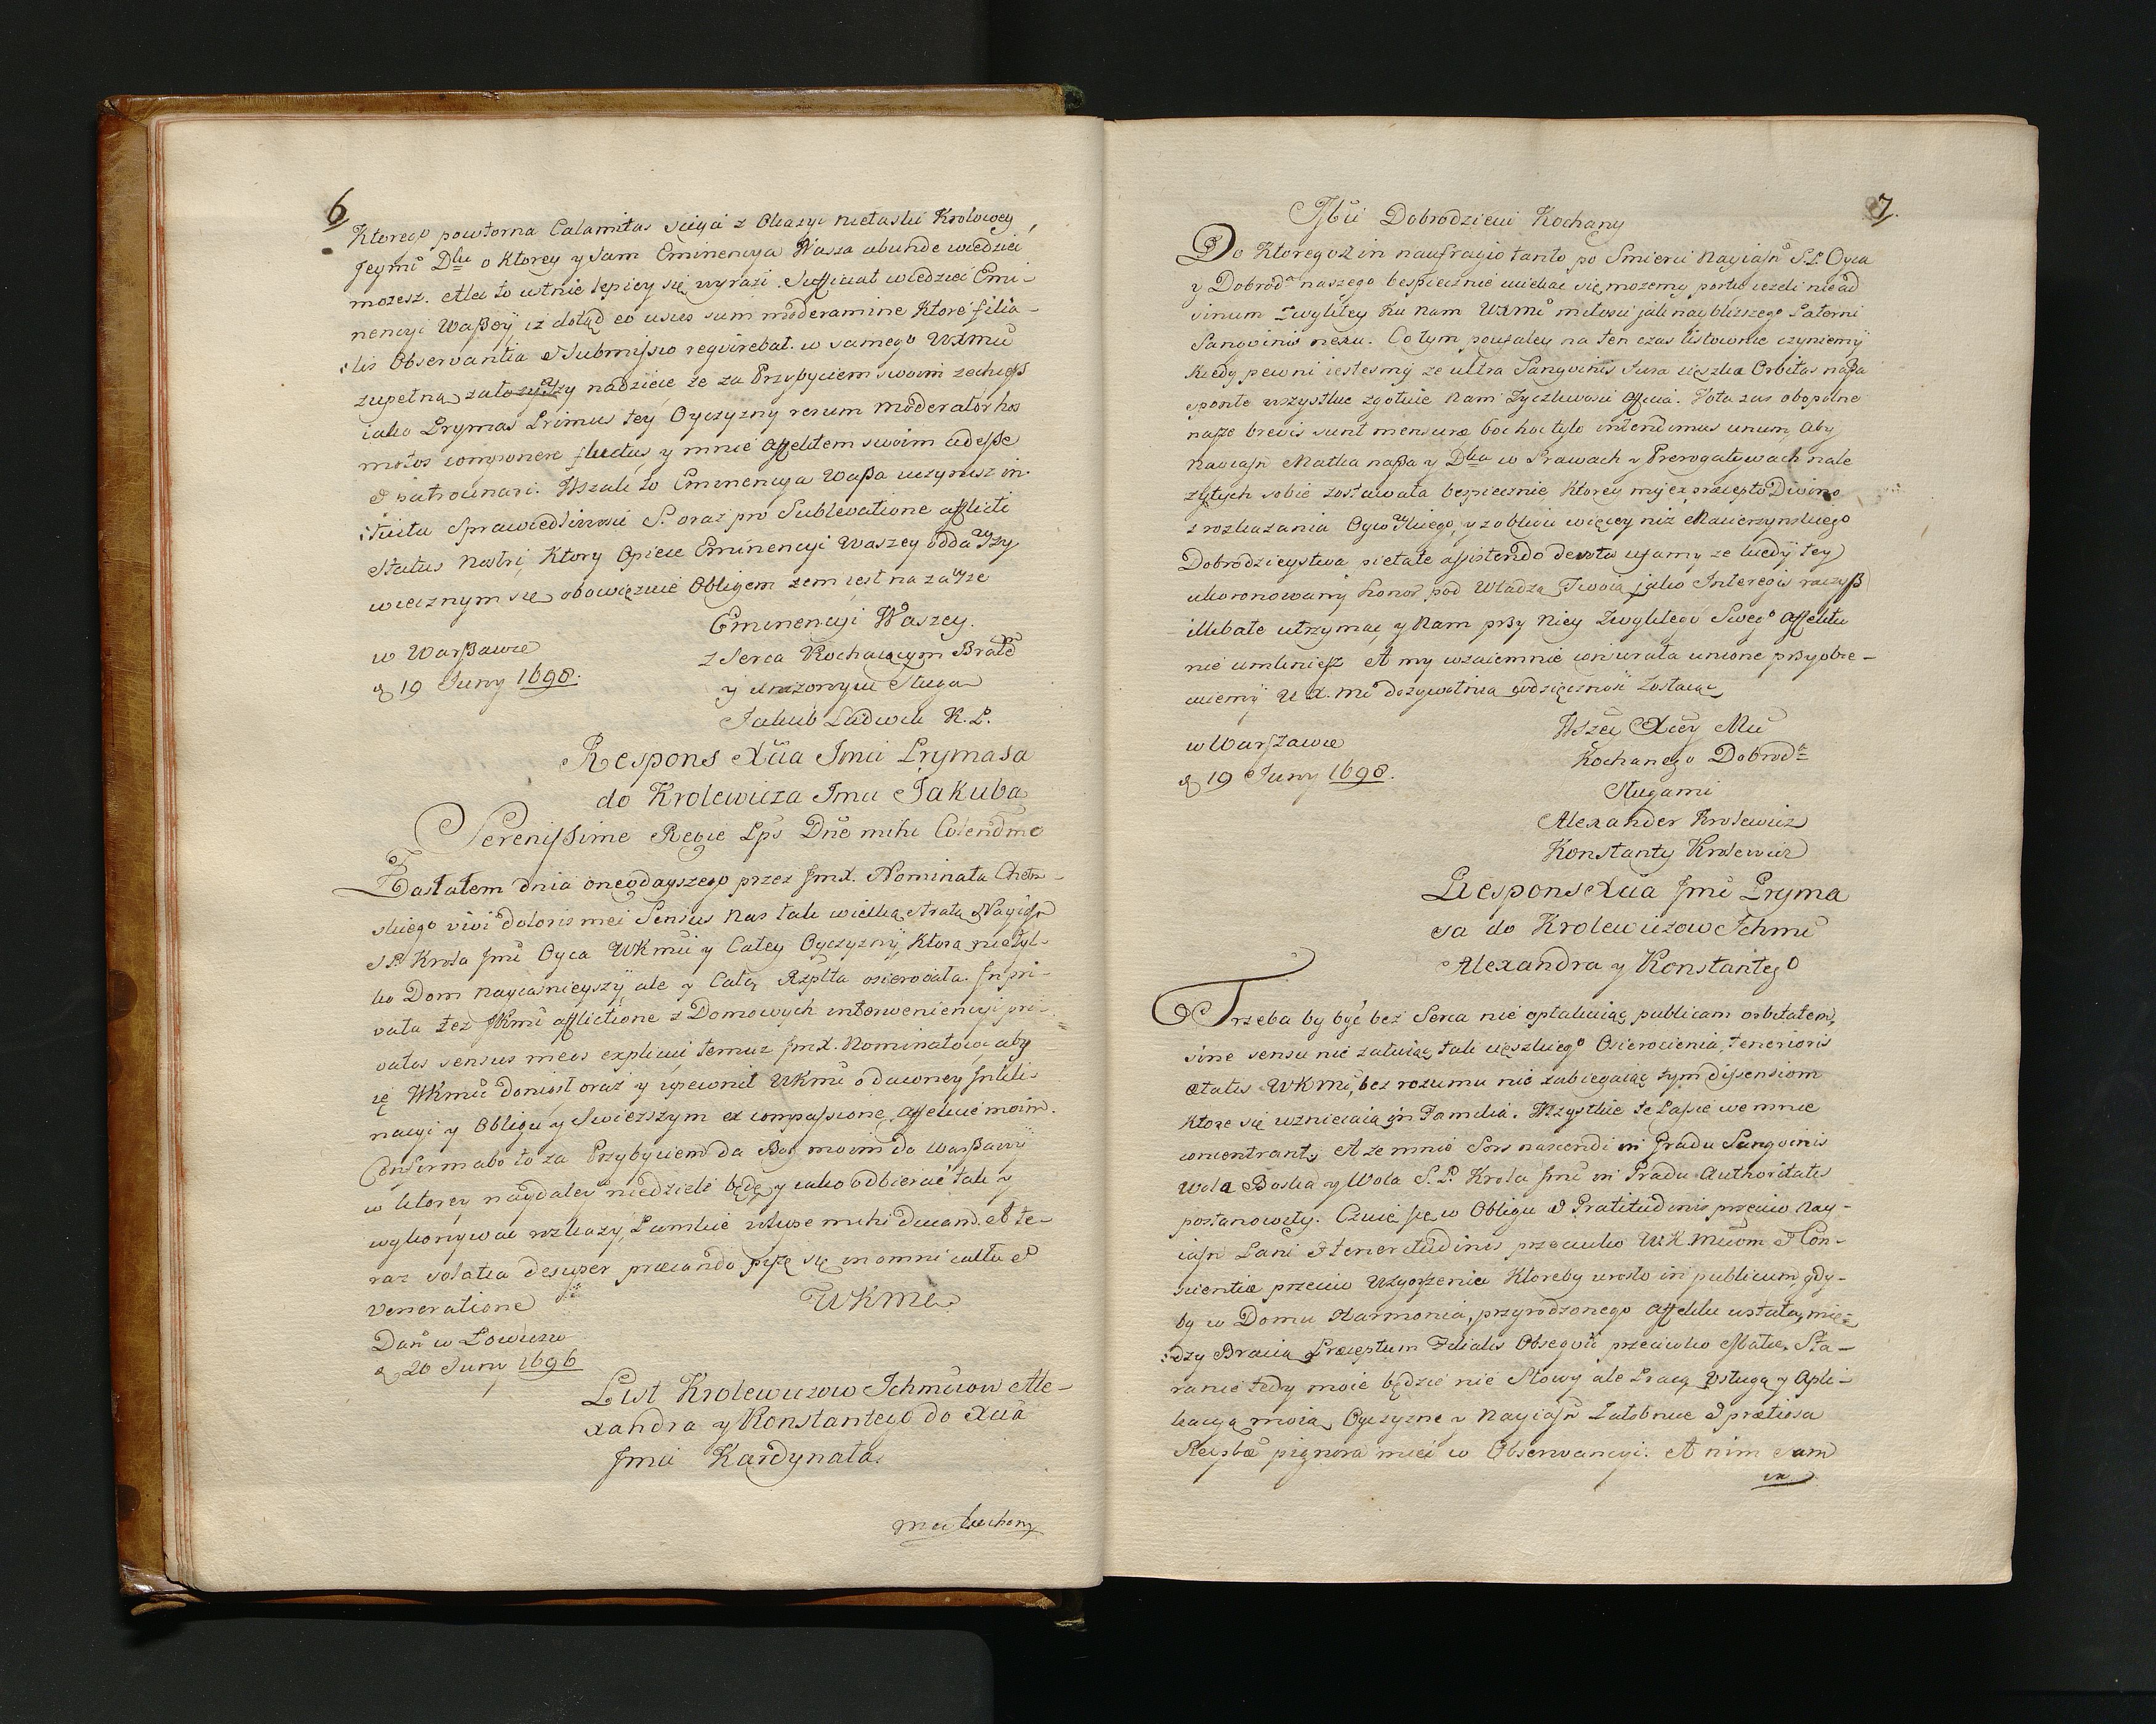 6
Ktorego powtorna Calamitas sciga z Okazyi nietaski Krolowey
Jeymci Dki o Ktorey y sam Eminencya Wasza abunde wiedziec
mozesz. Ale to ustnie lepiey się wyrazi. Sufficiat wiedziec Emi-
nencyi Waszey iz dotąd eo usus sum moderamine Ktore filia-
lis Observantia & Submissio reqvirebat. w samego WXMci
zupełną założywszy nadzieię ze za Przybyciem swoim zechcesz
iako Prymas Primus tey Oyczyzny rerum moderator hos
motos componere fluctus, y mnie affektem swoim adesse
& patrocinari. Wszak to Eminencya Wasza uczynisz in-
tuitu Sprawiedliwosci S. oraz pro Sublevatione afflicti
Status Nostri, Ktory Opiece Eminencyi Waszey oddawszy
wiecznym się obowięzuie Obligem zem iest na zawsze
Eminencyi Waszey.
w Warszawie
z Serca Kochaiącym Bratem
d 19 Juny 1698.
y unizonym Sługą
Jakub Ludwik K. P.
Respons Xcia Jmci Prymasa
do Krolewicza Jmci Jakuba
Serenissime Regie Pps Dne mihi Colendmo
Zasłałem dnia onegdayszego przez JmX. Nominata Chełm-
skiego vivi doloris mei Sensus nas tak wielką stratą Nayiasn
SP Krola Jmci Oyca WKmci y Całey Oyczyzny, Ktora nietyl-
ko Dom nayiasnieyszy ale y Całą Rzptta osierociała. In pri-
vata tez JKmci afflictione z Domowych interweniencyi pri-
vatos sensus meos explicui temuz JmX. Nominatowi aby
ie WKmci doniost oraz y upewnił WKmci o dawney Inkli-
nacyi y Obligu y swiezszym ex compassione affekcie moim.
Confirmabo to za Przybyciem da Bog moim do Warszawy
w ktorey naydaley w niedziele będę y iako odbierać tak y
wykonywac rozkazy Pańskie
raz solatia desuper precando piszę się in omni cultu &
veneratione
WKMci
Dan w Łowiczu
d 20 Juny 1696
List Krolewiczow Ichmciow Ale-
xandra y Konstantego do Xcia
Jmci Kardynała.
7.
Dobrodzieiu Kochany
Do Ktoregoz in naufragio tanto po Smierci Nayiasn S.P. Oyca
y Dobroda naszego bespiecznie uciekac się mozemy portu iezeli nie ad
sinum zwykłey ku nam WXmci miłosci jak naybliższego Paterni
Sangvinis nexu. Co tym poufaley na ten czas listownie czyniemy
kiedy pewni iestesmy ze ultra Sangvinis Jura cięszka Orbitas nasza
sponte wszystkie zgotuie nam Zyczliwosci Officia. Vota zas obopolne
nasze brevis sunt mensuræ bo hoc tylo intendimus unum, aby
Nayiasn Matka nasza y Dka w Prawach y Prerogatywach nale
zytych sobie zostawała bespiecznie, Ktorey my ex præcepto Divino
z rozkazania Oycowskiego, y z obliciu więcey niz Macierzynskiego
Dobrodzieystwa pietate assistendo devota ufamy ze kiedy tey
ukoronowany honor pod Władzą Twoią jako Interregis raczysz
illibate utrzymac, y Nam przy Niey Zwykłego Swego affektu
nie umkniesz. A my wzaiemnie coniurata unione przyobie-
cuiemy W.X.mci dozywotnią wdzięcznosc zostaiąc
Wszei Xcey Mci
w Warszawie
Kochanego Dobroda
d 19 Juny 1698.
Sługami
Alexander Krolewicz
Konstanty Krolewicz
Respons Xcia Jmci Pryma
sa do Krolewiczow Ichmci
Alexandra y Konstantego
Trzeba by być bez Serca nie optakiwaiąc publicam orbitatem,
sine sensu nie załuiąc tak cięszkiego Osierocenia tenerioris
ætatis WKMci, bez rozumu nie zabiegaiąc tym dissensiom
Ktore się wznieciaią in Familia. Wszystkie te Passie we mnie
concentrant, A ze mnie Sors nascendi in Gradu Sangvinis
Wola Boska y Wola S.P. Krola Jmci in Gradu Authoritatis
postanowiły. Czuię się w Obligu & Gratitudinis przeciw Nay-
iasn Pani & teneritudinis przeciwko W.K.Mciom & Con-
scientiæ przeciw Uzgorszeniu Ktoreby urosło in publicum gdy-
by w Domu Harmonia, przyrodzonego affektu ustała, mię-
dzy Bracią Præceptum Filialis Obseqvii przeciwko Matce. Sta-
ranie tedy moie będzie nie Słowy ale Pracą Usługą y Apli-
kacyą moią Oyczyznę y Nayiasn Załobnice & pretiosa
Reipbæ pignora mieć w Obserwancyi. A nim sam
in